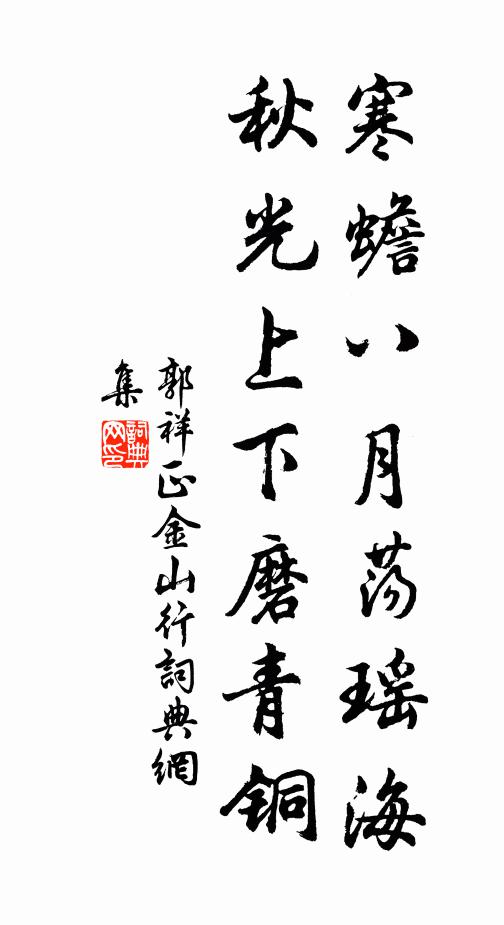 寒蟾八月荡瑶海
秋光上下磨青铜
郭祥正金山行詞典網
集
詞典网印